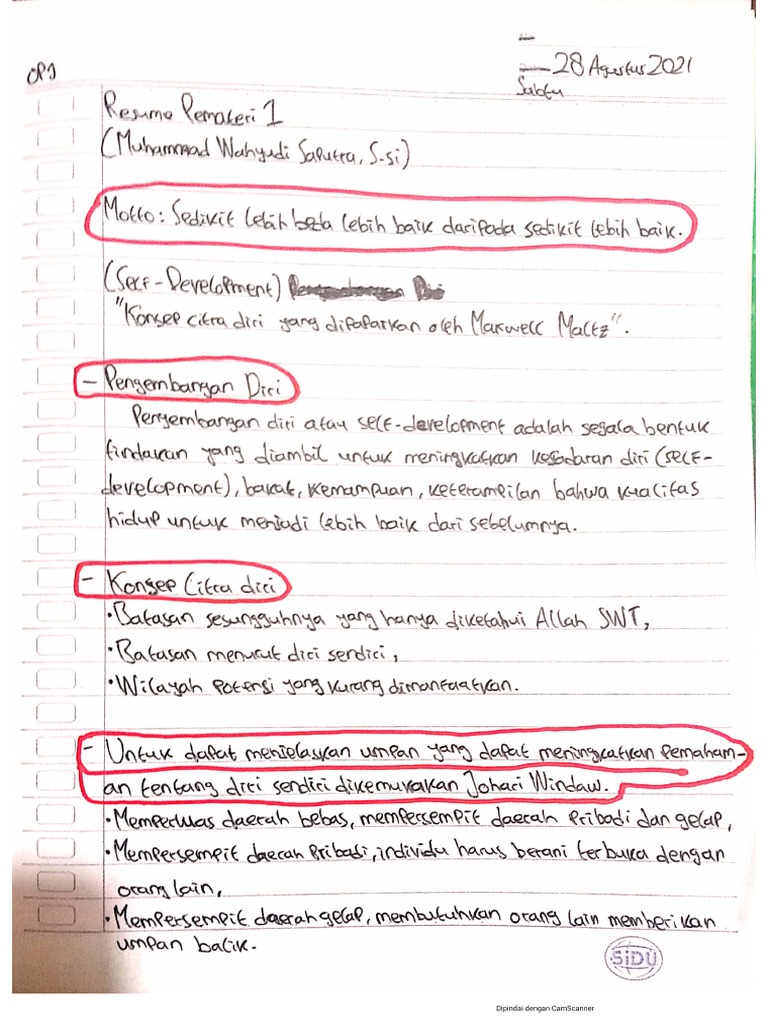 28 Agustus 2021
Sabtu
Resume Pemateri 1
(Muhammad Wahyudi Saputra, S.si)
Motto: Sedikit lebih beda lebih baik daripada sedikit lebih baik.
(Self-Development)
"Konsep citra diri yang dipaparkan oleh Maxwell Maltz".
- Pengembangan Diri
Pengembangan diri atau self-development adalah segala bentuk
tindakan yang diambil untuk meningkatkan kesadaran diri (self-
development), bakat, kemampuan, keterampilan bahwa kualitas
hidup untuk menjadi lebih baik dari sebelumnya.
- Konsep Citra diri
• Batasan sesungguhnya yang hanya diketahui Allah SWT,
• Batasan menurut diri sendiri,
• Wilayah potensi yang kurang dimanfaatkan.
- Untuk dapat menjelaskan umpan yang dapat meningkatkan pemaham-
an tentang diri sendiri dikemukakan Johari Windaw.
• Memperluas daerah bebas, mempersempit daerah pribadi dan gelap,
• Mempersempit daerah pribadi, individu harus berani terbuka dengan
orang lain,
• Mempersempit daerah gelap, membutuhkan orang lain memberikan
umpan balik.
SiDU
Dipindai dengan CamScanner